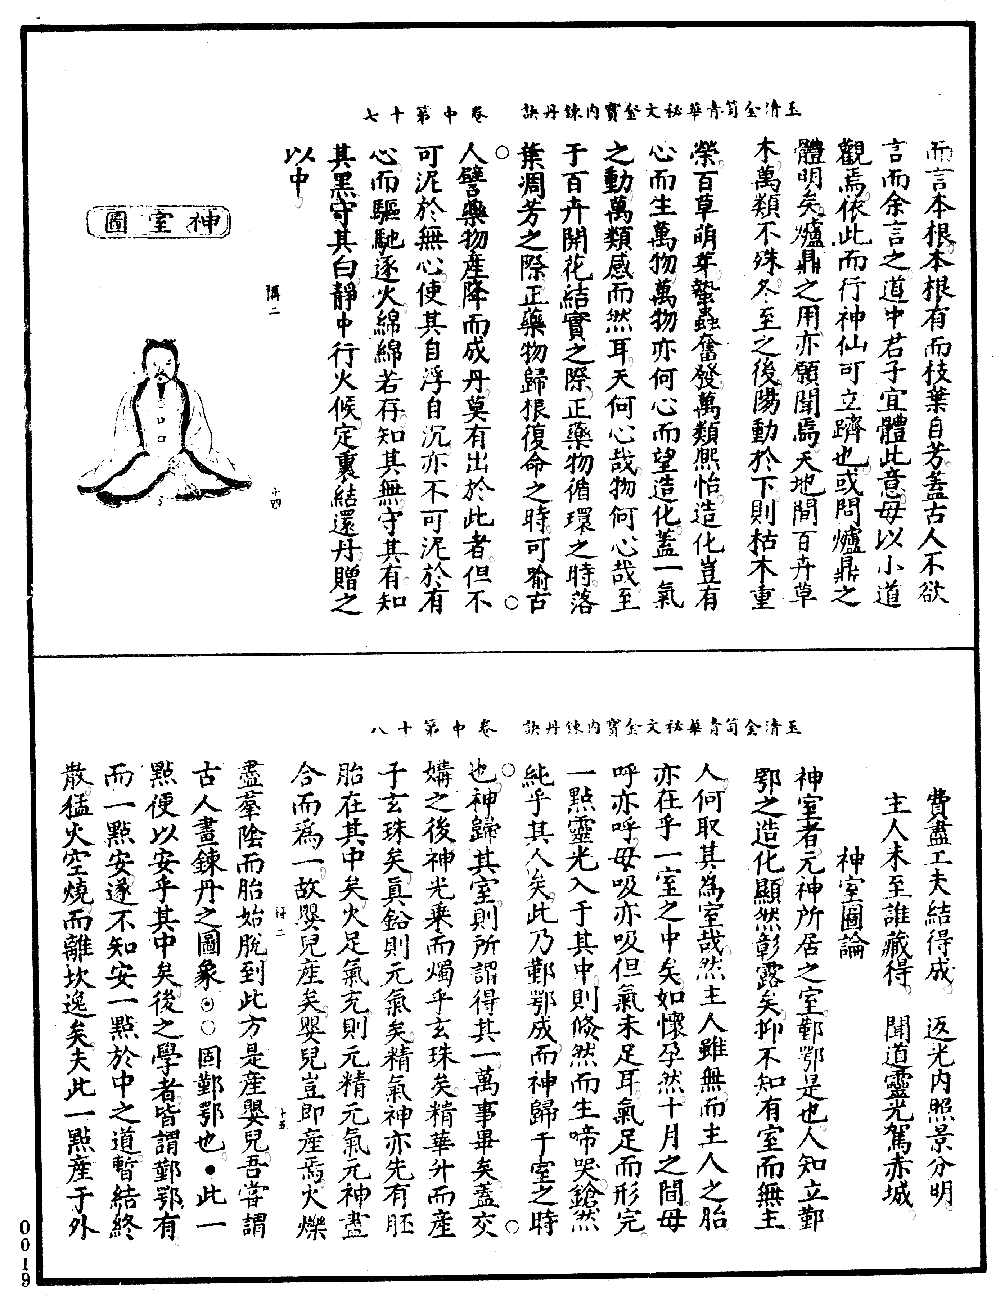 玉清金笥青華秘文金寶內鍊丹訣　卷中第十七
而言本根本根有而枝葉自芳蓋古人不欲
言而余言之道中君子宜體此意毋以小道
觀焉依此而行神仙可立躋也或問爐鼎之
體明矣爐鼎之用亦願聞焉天地間百卉草
木萬類不殊冬至之後陽動於下則枯木重
榮百草萌芽蟄蟲奮發萬類熙怡造化豈有
心而生萬物萬物亦何心而望造化蓋一氣
之動萬類感而然耳天何心哉物何心哉至
于百卉開花結實之際正藥物循環之時落
葉凋芳之際正藥物歸根復命之時可喻古
人譬藥物産降而成丹莫有出於此者但不
可泥於無心使其自浮自沉亦不可泥於有
心而驅馳逐火綿綿若存知其無守其有知
其黑守其白靜中行火候定裏結還丹贈之
以中
神室圖
十四
玉清金笥青華秘文金寶內鍊丹訣　卷中第十八
費盡工夫結得成　返光內照景分明
主人未至誰藏得　聞道靈光駕赤城
神室圖論
神室者元神所居之室鄞鄂是也人知立鄞
鄂之造化顯然彰露矣抑不知有室而無主
人何取其為室哉然主人雖無而主人之胎
亦在乎一室之中矣如懷孕然十月之間母
呼亦呼母吸亦吸但氣未足耳氣足而形完
一點靈光入于其中則倏然而生啼哭鎗然
純乎其人矣此乃鄞鄂成而神歸于室之時
也神歸其室則所謂得其一萬事畢矣蓋交
媾之後神光乘而燭乎玄珠矣精華升而産
子玄珠矣真鉛則元氣矣精氣神亦先有胚
胎在其中矣火足氣充則元精元氣元神盡
合而爲一故嬰兒産矣嬰兒豈即産焉火爍
盡羣陰而胎始脫到此方是産嬰兒吾嘗謂
古人畫鍊丹之圖象☉○固鄞鄂也●此一
點便以安乎其中矣後之學者皆謂鄞鄂有
而一點安遂不知安一點於中之道暫結終
散猛火空燒而離坎逸矣夫此一點産于外
十五
0019